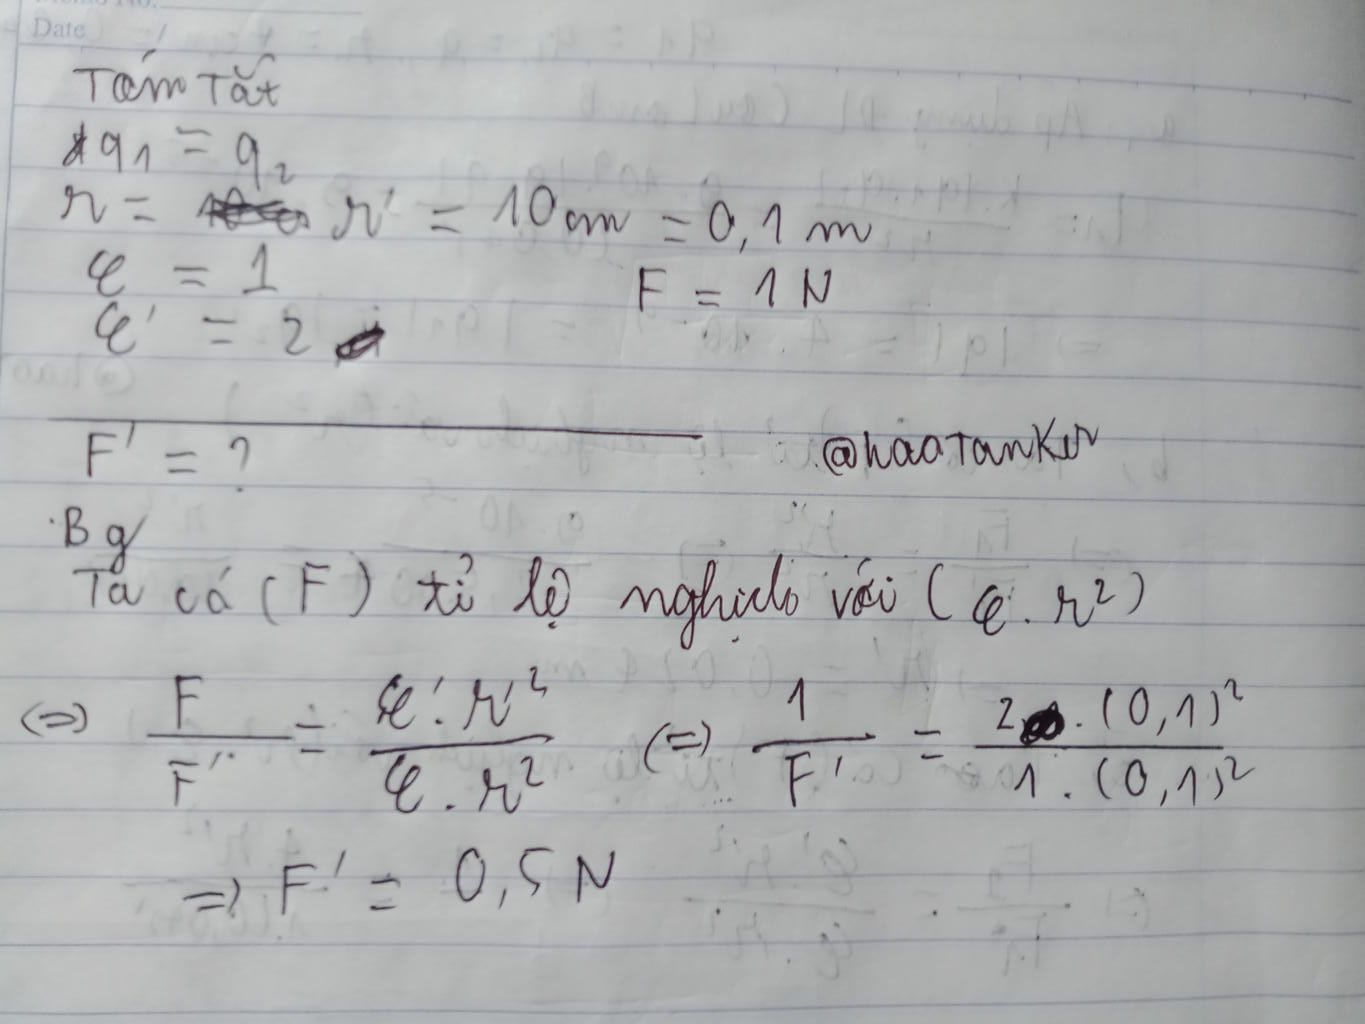 Date
Tóm Tắt
q1 = q2
r = r' = 10cm = 0,1 m
ε = 1 F = 1 N
ε' = 2
F' = ? @haoTanker
Bg
Ta có (F) tỉ lệ nghịch với (ε. r²)
(=) F/F' = ε'. r'²/ε. r² (=) 1/F' = 2. (0,1)²/1. (0,1)²
=> F' = 0,5 N